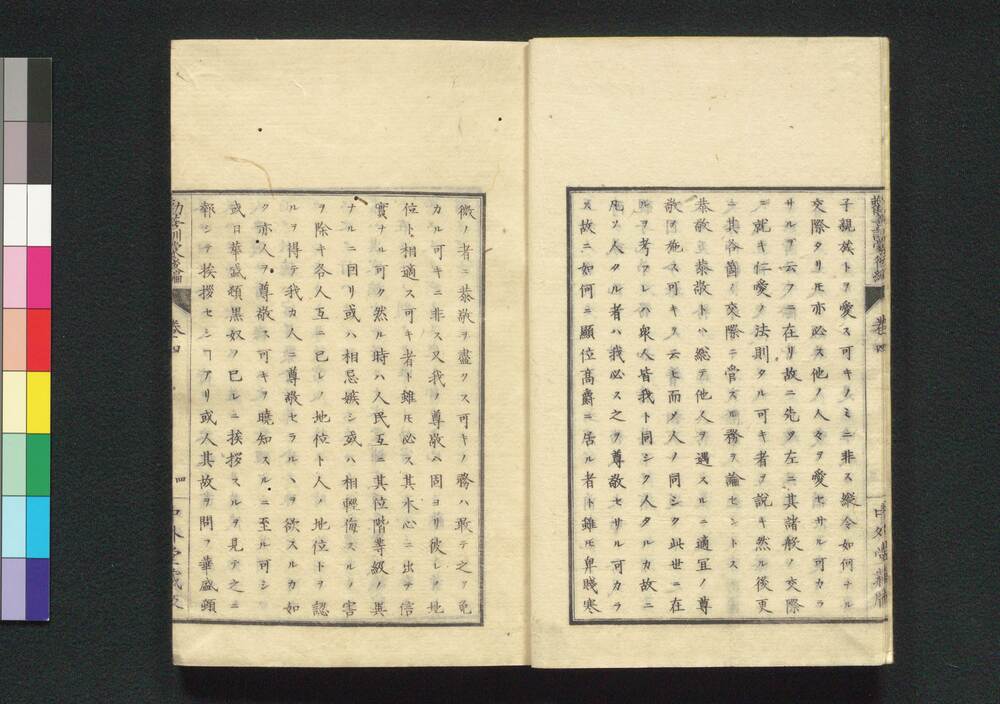 勸善訓蒙後編　卷四　中外堂藏版
子親族トヲ愛ス可キノミニ非ス縱令如何ナル
交際タリ𪜈亦必ス他ノ人々ヲ愛セサル可カラ
サルヲ云フニ在リ故ニ先ツ左ニ其諸般ノ交際
ニ就キ仁愛ノ法則タル可キ者ヲ說キ然ル後更
ニ其各箇ノ交際ニ管スル務ヲ論セントス
恭敬　恭敬トハ總テ他人ヲ遇スルニ適宜ノ尊
敬ヲ施ス可キヲ云ヒ而メ人ノ同シク此世ニ在
ルヲ考フレハ衆人皆我ト同シク人タルカ故ニ
凡ソ人タル者ハ我必ス之ヲ尊敬セサル可カラ
ス故ニ如何ニ顯位高爵ニ居ル者ト雖𪜈卑賤寒
微ノ者ニ恭敬ヲ盡クス可キノ務ハ敢テ之ヲ免
カル可キニ非ス又我ノ尊敬ハ固ヨリ彼レノ地
位ト相適ス可キ者ト雖𪜈必ス其本心ニ出テ信
實ナル可ク然ル時ハ人民互ニ其位階等級ノ異
ナルニ因リ或ハ相忌嫉シ或ハ相輕侮スルノ害
ヲ除キ各人互ニ己レノ地位ト人ノ地位トヲ認
ルヲ得テ我カ人ニ尊敬セラルヽヲ欲スルカ如
ク亦人ヲ尊敬ス可キヲ曉知スルニ至ル可シ
或日華盛頓黑奴ノ己レニ挨拶スルヲ見テ之ニ
報シテ挨拶セシヿアリ或人其故ヲ問フ華盛頓
卷四　四